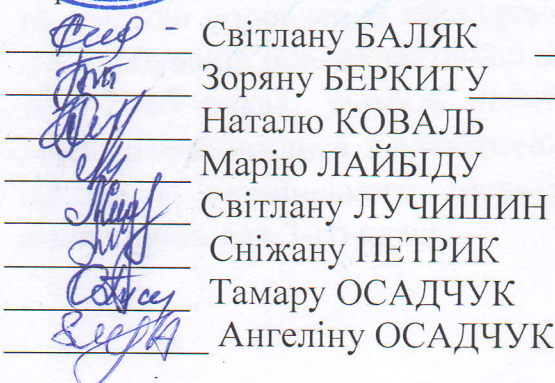 Світлану БАЛЯК
Зоряну БЕРКИТУ
Наталю КОВАЛЬ
Марію ЛАЙБІДУ
Світлану ЛУЧИШИН
Сніжану ПЕТРИК
Тамару ОСАДЧУК
Ангеліну ОСАДЧУК